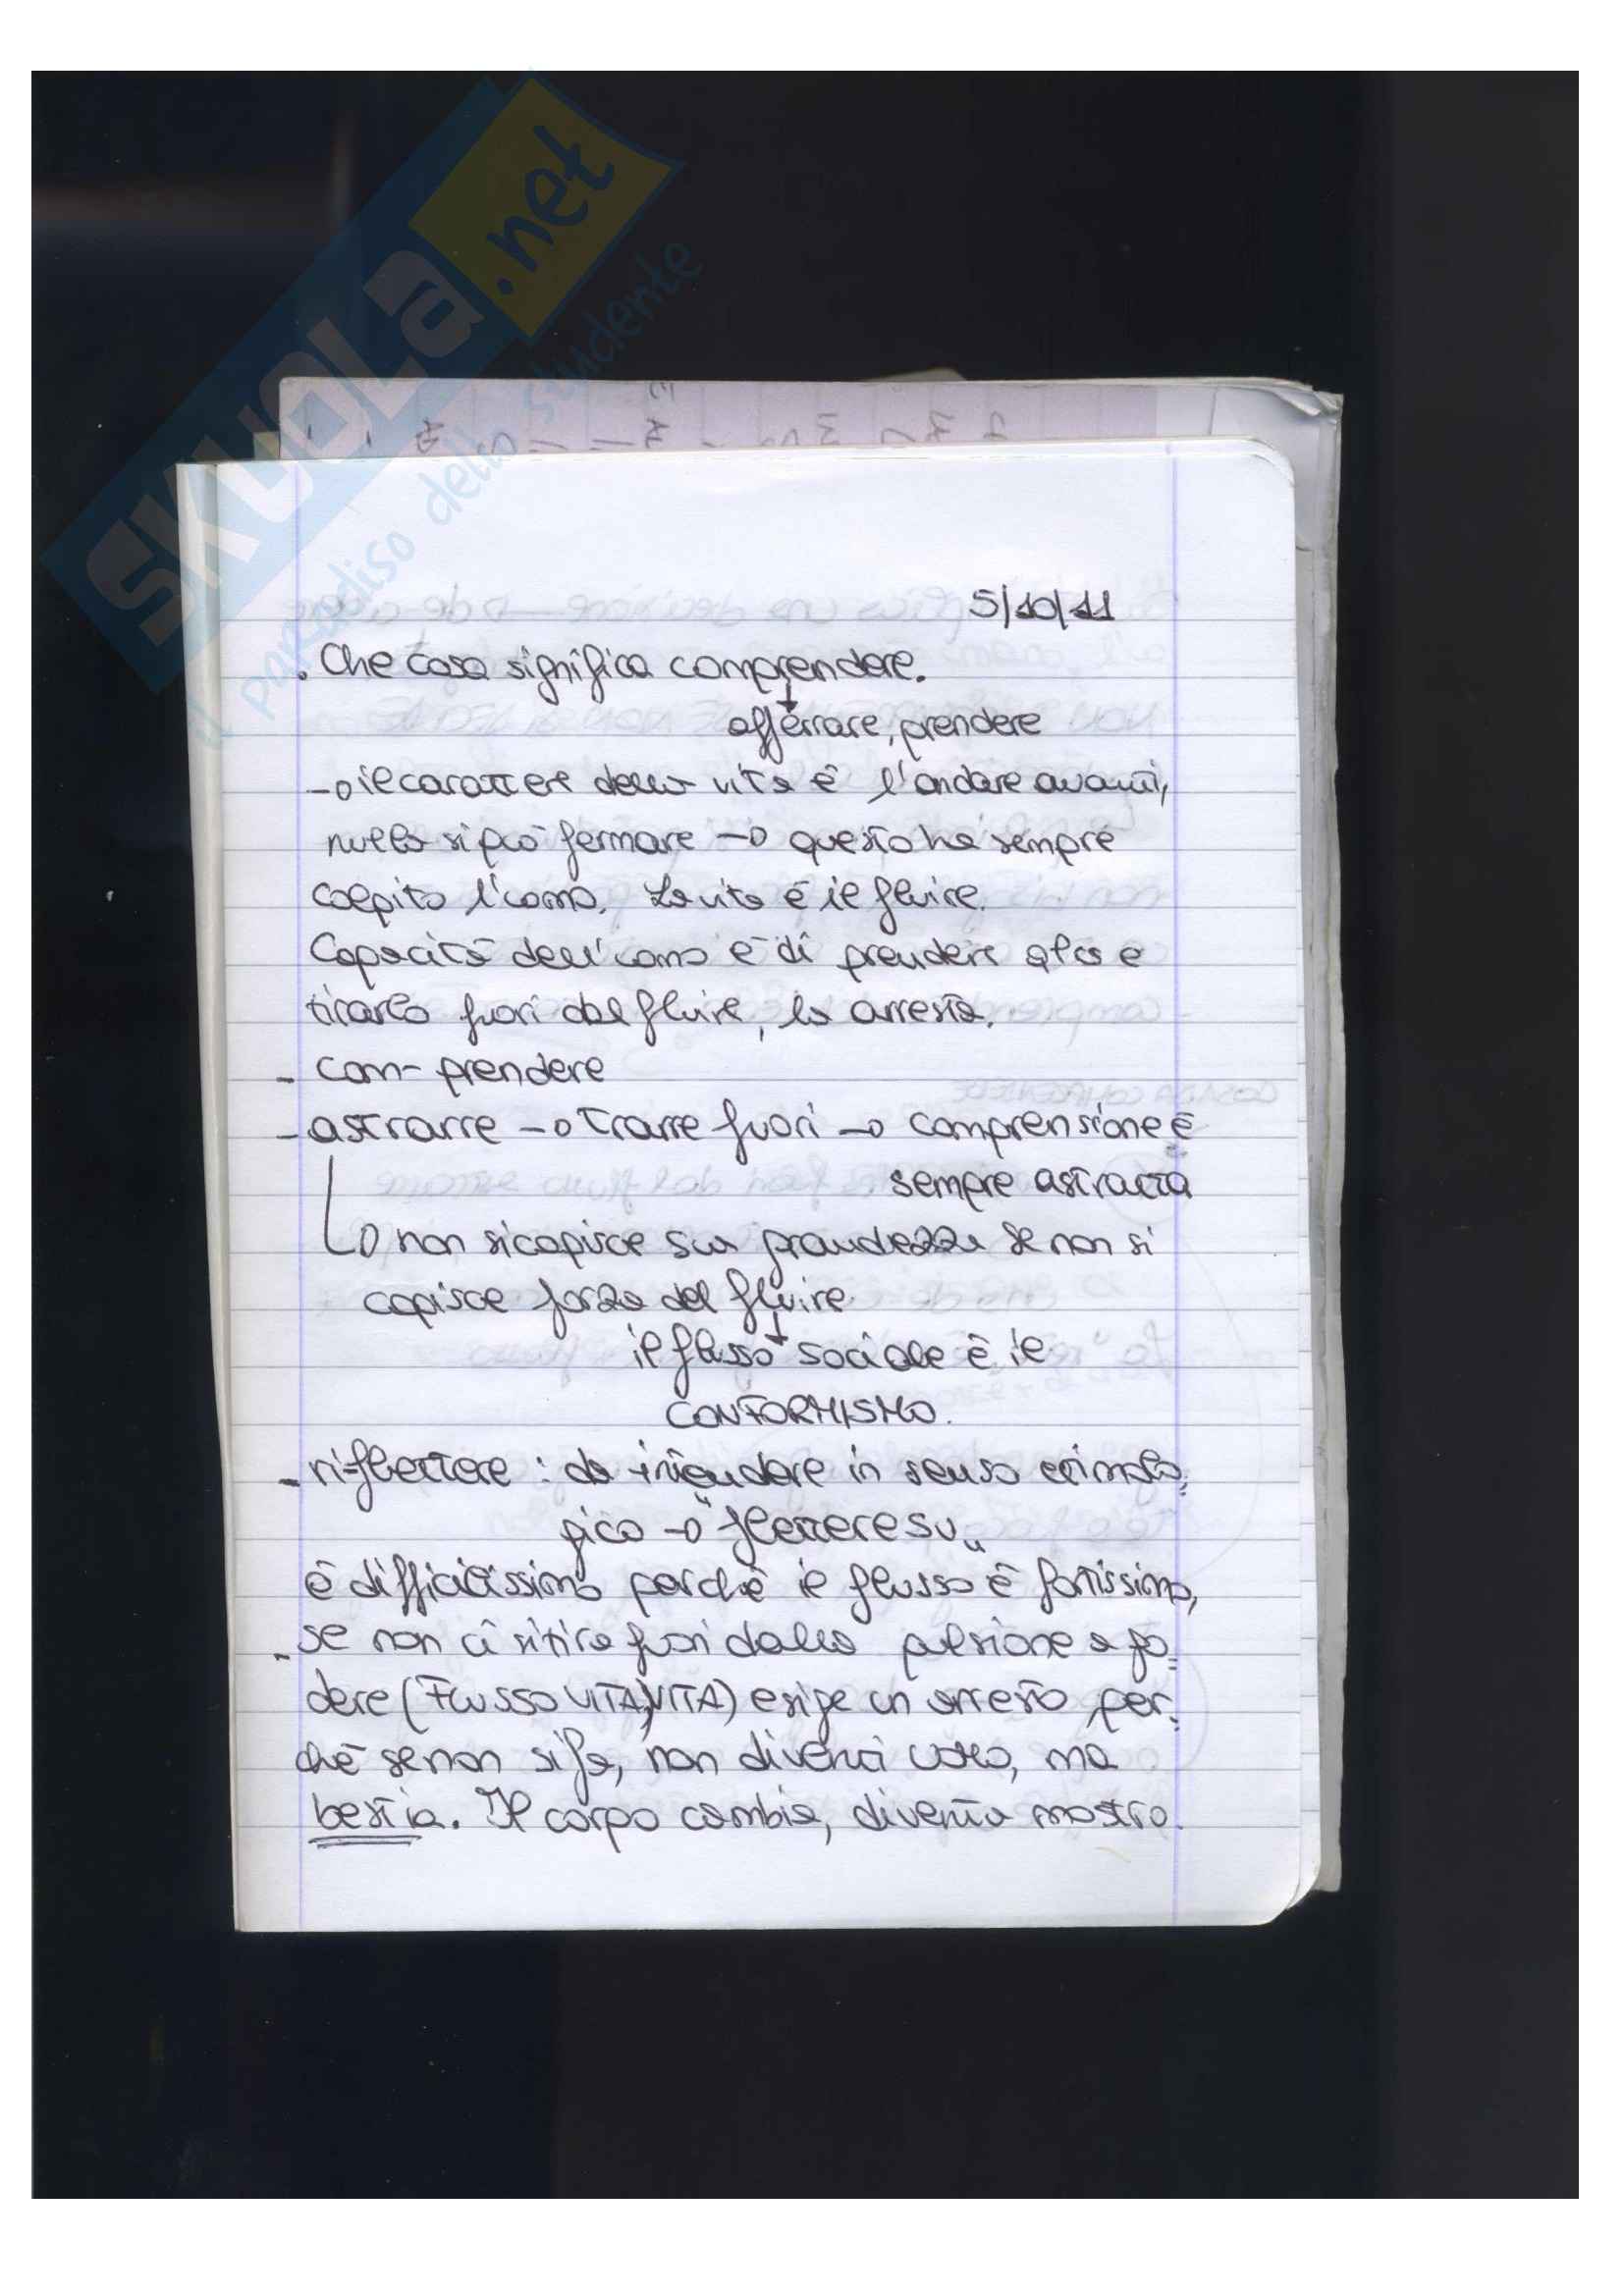 SKUOLA.net
il paradiso dello studente
5/10/11
. Che cosa significa comprendere.
↓
afferrare, prendere
→ il carattere della vita è l'andare avanti,
nulla si può fermare → questo ha sempre
colpito l'uomo. La vita è il fluire.
Capacità dell'uomo è di prendere qlcs e
tirarlo fuori dal fluire, lo arresta.
- com-prendere
- astrarre → trarre fuori → comprensione è
sempre astratta
↳ non si capisce sua grandezza se non si
capisce forza del fluire.
↓
il flusso sociale è il
CONFORMISMO.
- ri-flettere : da intendere in senso etimolo=
gico → "flettere su"
è difficilissimo perchè il flusso è fortissimo,
- se non ci si tira fuori dalla pulsione a go=
dere (FLUSSO VITA/VITA) esige un arresto per=
chè se non si fa, non diventi uomo, ma
bestia. Il corpo cambia, diventa mostro.